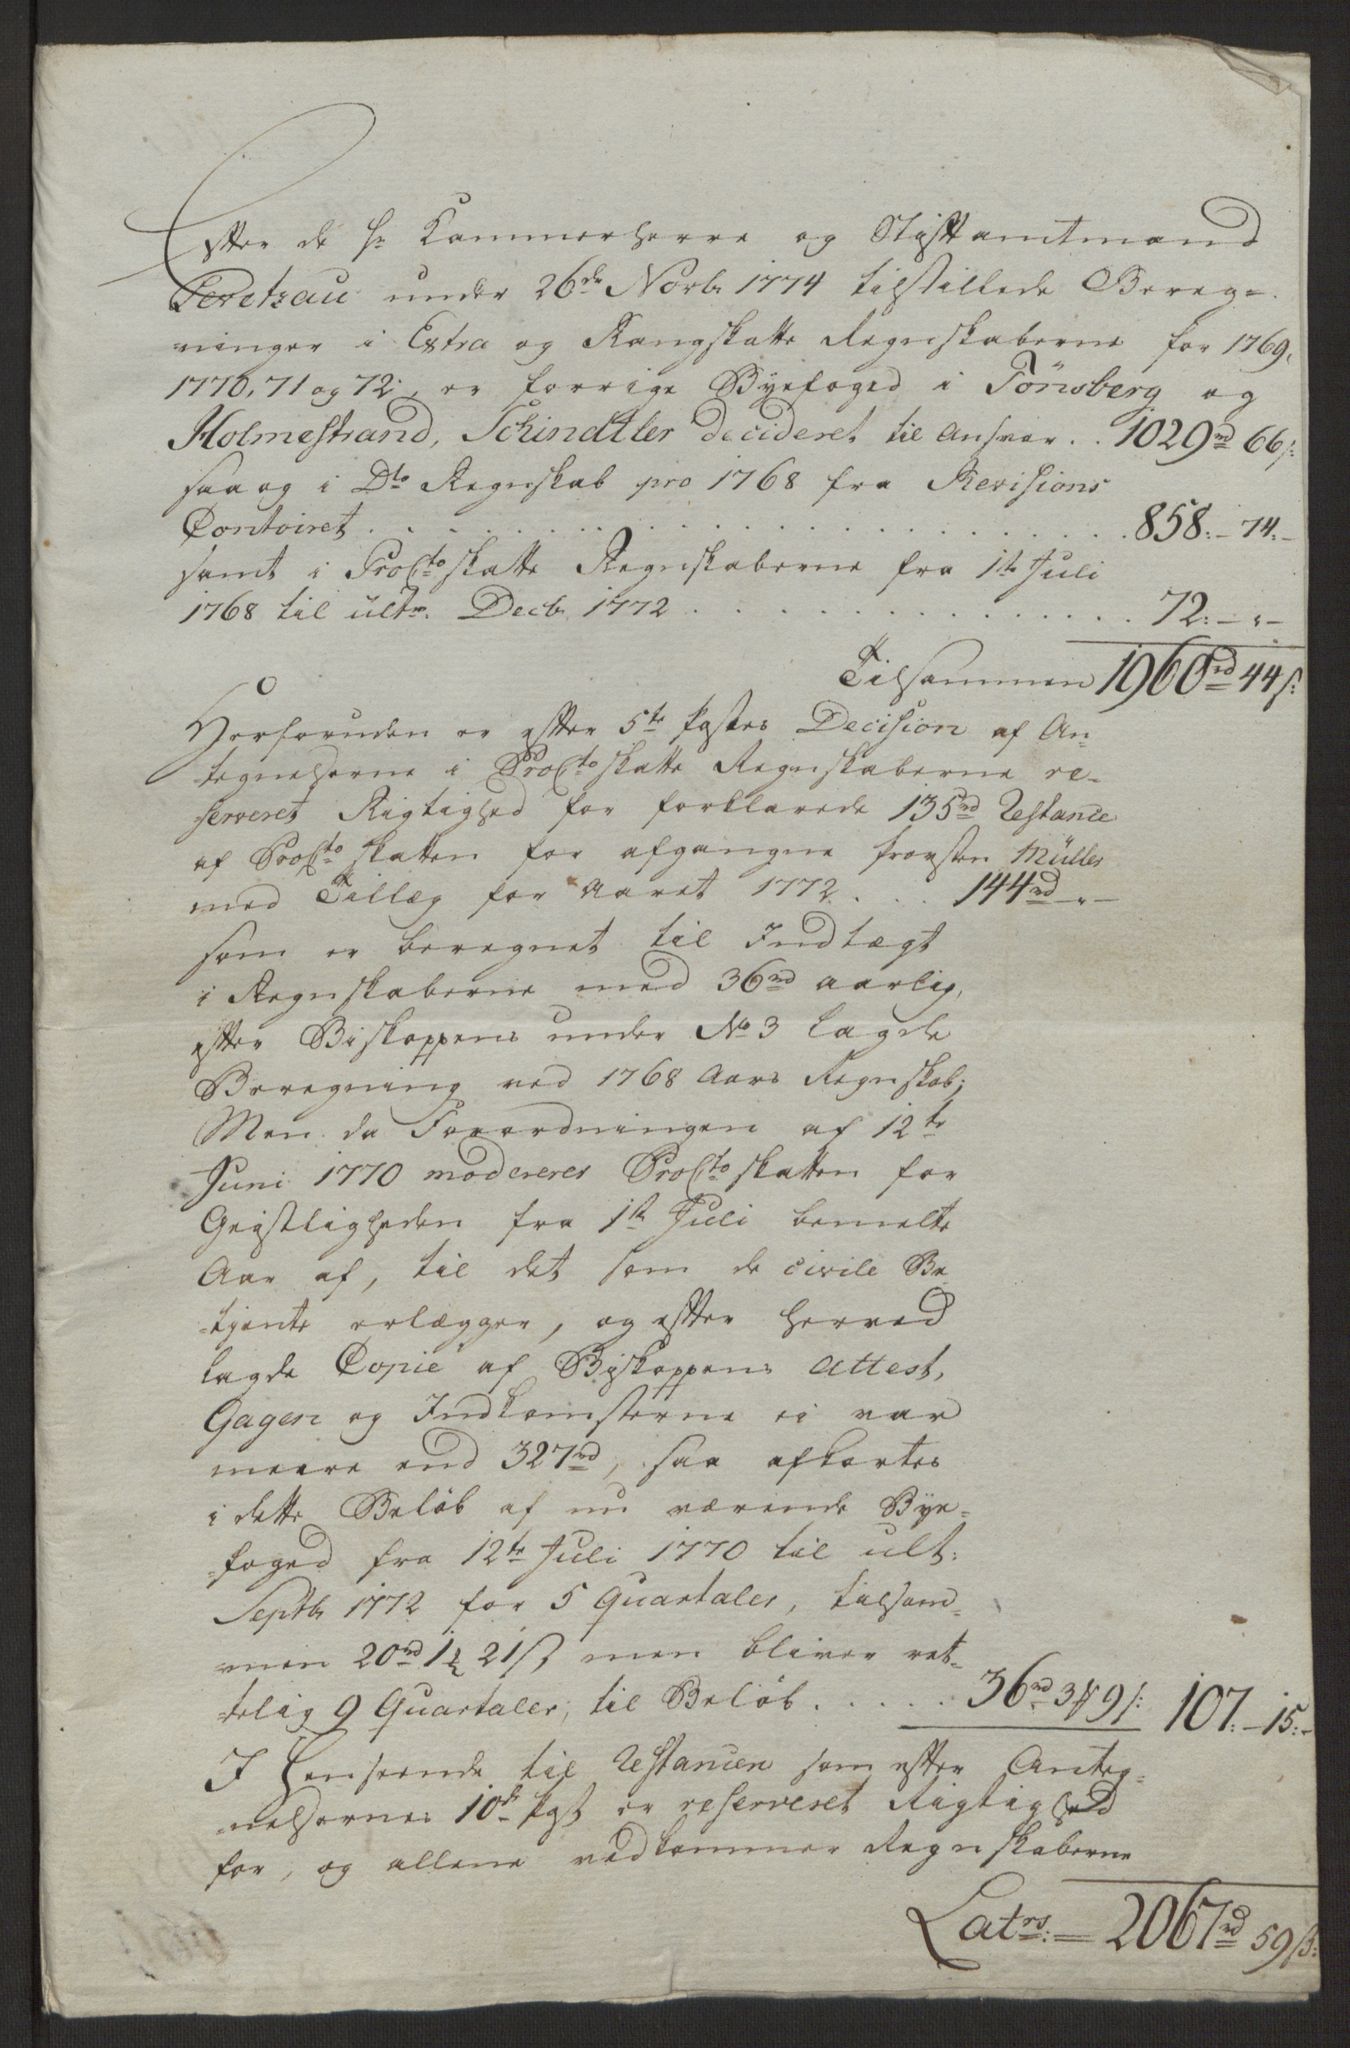 Efter de Hr Kammerherre og Stiftamtmand
Levetzau under 26de Novbr 1774 tilstillede Bereg=
ninger i Extra og Rangskatte Regnskaberne for 1769,
1770, 71 og 72, er forrige Byefoged i Tönsberg og
Holmestrand, Schindtler decideret til Ansvar . . 1029rd 66s:
saa og i Dto Regnskab pro 1768 fra Revisions
Contoiret . . . . . . . . . . 858:-74:-
samt i Procto skatte Regnskaberne fra 1te Juli
1768 til ultm. Decbr 1772 . . . . . . . 72:-"-
Tilsammen 1960rd 44s:
Herforuden er efter 5te Postes Decision af An=
tegnelserne i Procto skatte Regnskaberne re=
serveret Rigtighed for forklarede 135rd Restance
af Procto skatten for afgangne Provsten Müller
med Tillæg for Aaret 1772 . . . 144rd-"-
som er beregnet til Indtægt
i Regnskaberne med 36rd aarlig,
efter Biskoppens under No 3 lagde
Beregning ved 1768 Aars Regnskab;
Men da Forordningen af 12te
Juni 1770 modererer Procto skatten for
Geistligheden fra 1te Juli bemelte
Aar af, til det som de civile Be
=tjente erlægger, og efter herved
lagde Copie af Biskoppens Attest,
Gagen og Indkomsterne ei var
meere end 327rd, saa afkortes
i dette Beløb af nu værende Bye=
=foged fra 12te Juli 1770 til ult:
Septbr 1772 for 5 Quartaler, tilsam=
men 20rd 1 21s, men bliver ret=
=telig 9 Quartaler, til Beløb . . . . . 36rd 3 9s: 107:-15:-
I Henseende til Restancen som efter Anteg=
nelsernes 10de Post er reserveret Rigtighed
for, og allene vedkommer Regnskaberne
Latrs: = 2067rd 59s: